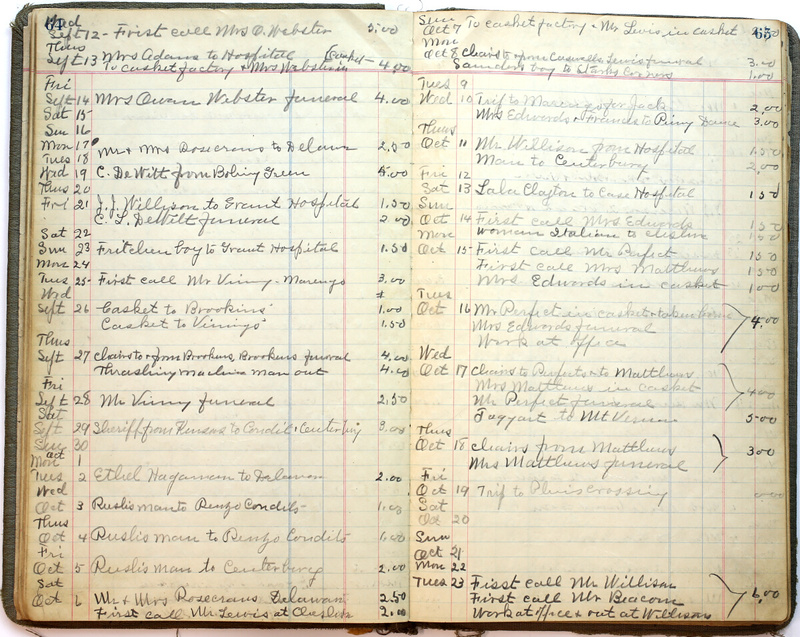 64
Wed
Sept 12 - First call Mrs O. Webster 3.00
Thus
Sept 13 Mrs Adams to Hospital (Casket-
To casket factory & Mrs Webster in 4.00
Fri
Sept 14 Mrs Owen Webster funeral 4.00
Sat 15
Sun 16
Mon 17 Mr & Mrs Rosecrans to Delawa 2.50
Tues 18
Wed 19 C. DeWitt from Boling Green 5.00
Thus 20
Fri 21 J.J. Willison to Grant Hospital 1.50
C. L. DeWitt funeral 2.00
Sat 22
Sun 23 Fritchen boy to Grant Hospital 1.50
Mon 24
Tues 25- First call Mr Vinny - Marengo 3.00
Wed
Sept 26 Casket to Brookins 1.00
Casket to Vinings 1.50
Thus
Sept 27 chairs to & from Brookens, Brookens funeral 4.00
Thrashing machine man out 4.00
Fri
Sept 28 Mr Vinny funeral 2.50
Sat
Sept 29 Sheriff from Kansas to Condit & Centerburg 3.00
Sun 30
Oct
Mon 1
Tues 2 Ethel Hagaman to Delawan 2.00
Wed
Oct 3 Ruslis man to Renzo Condits 1.00
Thus
Oct 4 Ruslis man to Renzo Condits
Fri
Oct 5 Ruslis man to Centerburg 2.00
Sat
Oct 6 Mr & Mrs Rosecrans Delawan 2.50
First call Mr Lewis at 2.00
65
Sun
Oct 7 To casket factory & Mr Lewis in casket
Mon
Oct 8 chairs to & from funeral 3.00
Saunders boy to Starks Corners 1.00
Tues 9
Wed 10 Trip to Marengo for Jack 2.00
Mrs Edwards & Frances to Piney Dance 3.00
Thus
Oct 11 Mr Willison from Hospital 1.50
Man to Centerburg 2.00
Fri 12
Sat 13 Lala Clayton to Case Hospital 150
Sun
Oct 14 First call Mrs Edwards 150
Mon woman Italian to 150
Oct 15- First call Mr Perfect 150
First call Mrs Matthews 150
Mrs Edwards in casket 100
Tues
Oct 16 Mr Perfect in casket & taken home
Mrs Edwards funeral 4.00
Work at office
Wed
Oct 17 Chairs to Perfects & to Matthews
Mrs Matthews in casket 400
Mr Perfect funeral
Taggart to Mt Vernon 5-00
Thus
Oct 18 chairs from Matthews 300
Mrs Matthews funeral
Fri
Oct 19 Trip to Crossing
Sat
Oct 20
Sun
Oct 21
Mon 22
Tues 23 First call Mr Willison
First call Mr Beacom 6.00
Work at office & out at Willison